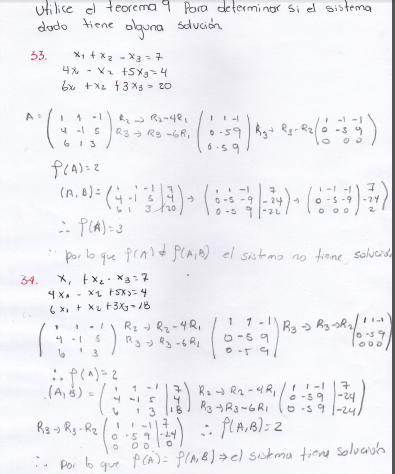 Utilice el teorema 9 Para determinar si el sistema
dado tiene alguna solución.
33. x₁ + x₂ - x₃ = 7
4x₁ - x₂ + 5x₃ = 4
6x₁ + x₂ + 3x₃ = 20
A = ( 1 1 -1 ; 4 -1 5 ; 6 1 3 ) R₂ → R₂-4R₁ R₃ → R₃-6R₁ ( 1 1 -1 ; 0 -5 9 ; 0 -5 9 ) R₃ → R₃-R₂ ( 1 -1 -1 ; 0 -5 9 ; 0 0 0 )
ρ(A) = 2
(A,B) = ( 1 1 -1 | 7 ; 4 -1 5 | 4 ; 6 1 3 | 20 ) → ( 1 1 -1 | 7 ; 0 -5 -9 | -24 ; 0 -5 9 | -22 ) → ( 1 -1 -1 | 7 ; 0 -5 -9 | -24 ; 0 0 0 | 2 )
∴ ρ(A) = 3
∴ por lo que ρ(A) ≠ ρ(A,B) el sistema no tiene solución
34. x₁ + x₂ - x₃ = 7
4x₁ - x₂ + 5x₃ = 4
6x₁ + x₂ + 3x₃ = 18
( 1 1 -1 ; 4 -1 5 ; 6 1 3 ) R₂ → R₂-4R₁ R₃ → R₃-6R₁ ( 1 1 -1 ; 0 -5 9 ; 0 -5 9 ) R₃ → R₃-R₂ ( 1 1 -1 ; 0 -5 9 ; 0 0 0 )
∴ ρ(A) = 2
(A,B) = ( 1 1 -1 | 7 ; 4 -1 5 | 4 ; 6 1 3 | 18 ) R₂ → R₂-4R₁ R₃ → R₃-6R₁ ( 1 1 -1 | 7 ; 0 -5 9 | -24 ; 0 -5 9 | -24 )
R₃ → R₃-R₂ ( 1 1 -1 | 7 ; 0 -5 9 | -24 ; 0 0 0 | 0 ) ∴ ρ(A,B) = 2
∴ Por lo que ρ(A) = ρ(A,B) ⇒ el sistema tiene solución